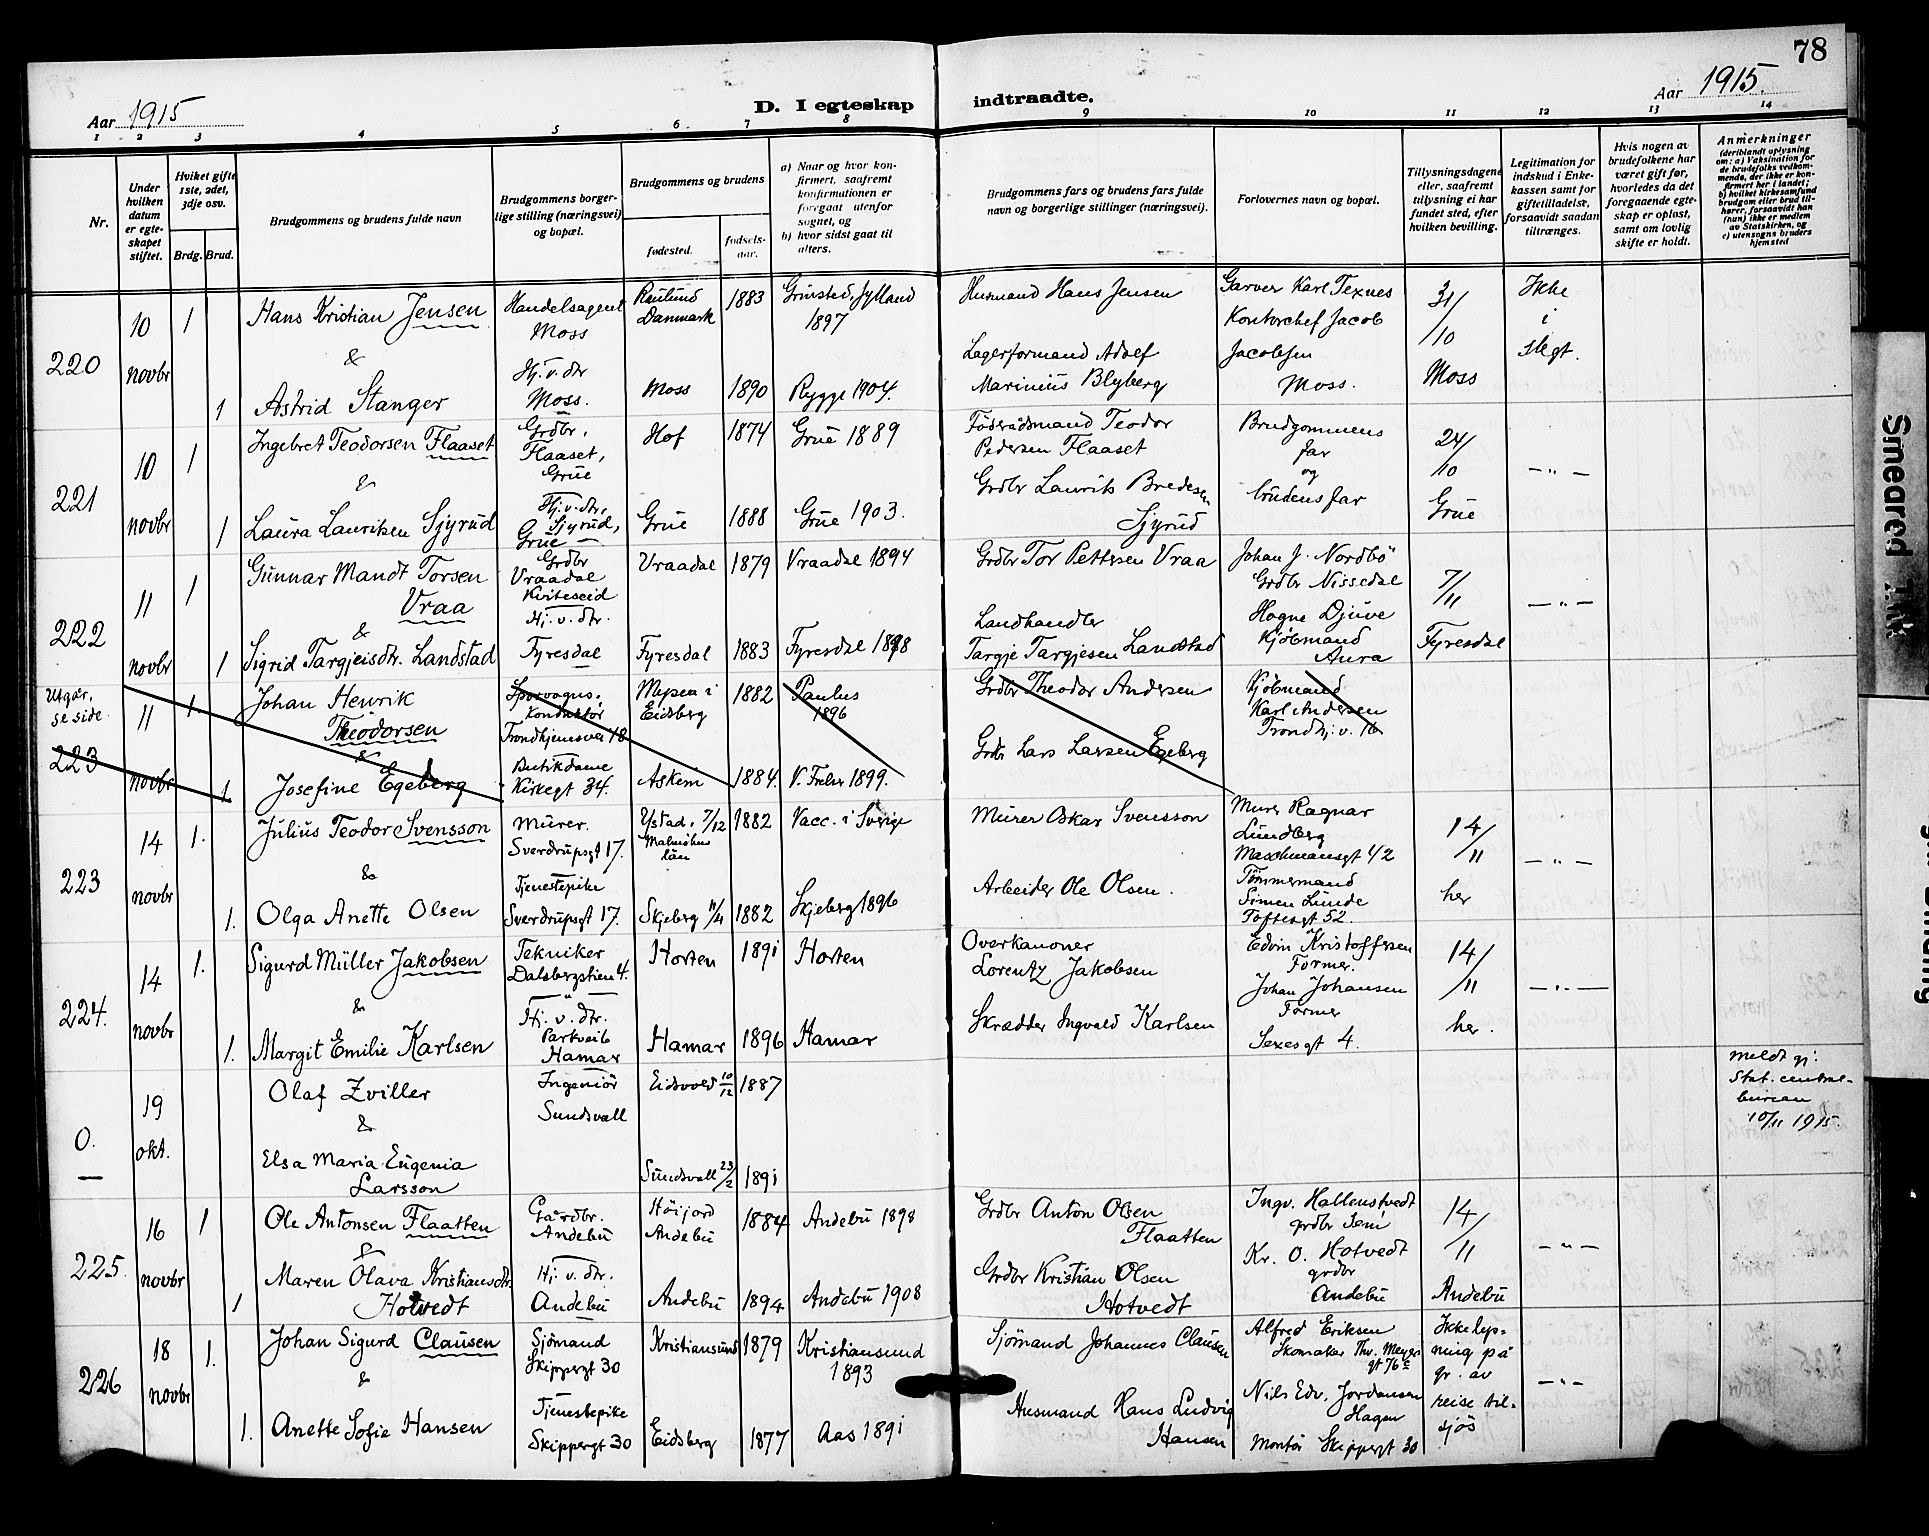 78
Aar 1915
D. I egteskap indtraadte.
Aar 1915.
1 2 3 4 5 6 7 8 9 10 11 12 13 14
Nr.
Under hvilken datum er egteskapet stiftet.
Hviket gifte 1ste, 2det, 3dje osv.
Brdg. Brud.
Brudgommens og brudens fulde navn
Brudgommens borgerlige stilling (næringsvei) og bopæl.
Brudgommens og brudens
fødested.
fødselsaar.
a) Naar og hvor konfirmert, saafremt konfirmationen er foregaat utenfor sognet, og
b) hvor sidst gaat til alters.
Brudgommens fars og brudens fars fulde navn og borgerlige stillinger (næringsvei).
Forlovernes navn og bopæl.
Tillysningsdagene eller, saafremt tillysning ei har fundet sted, efter hvilken bevilling.
Legitimation for indskud i Enkekassen samt for giftetilladelse, forsaavidt saadan tiltrænges.
Hvis nogen av brudefolkene har været gift før, hvorledes da det foregaaende egteskap er opløst, samt om lovlig skifte er holdt.
Anmerkninger
(deriblandt oplysning om: a) Vaksination for de brudefolks vedkommende, der ikke er konfirmert her i landet; b) hvilket kirkesamfund brudgom eller brud tilhører, forsaavidt han (hun) ikke er medlem av Statskirken, og c) utensogns bruders hjemsted
220
10 novbr
1
Hans Kristian Jensen
&
1
Astrid Stanger
Handelsagent
Moss
Hj. v. dtr
Moss.
Danmark
1883
Moss
1890
Grinsted, Jylland
1897
Rygge 1904.
Husmand Hans Jensen
Lagerformand Adolf
Marinius Blyberg
Garver Karl Texnes
Kontorchef Jacob
Jacobsen
Moss.
31/10
Moss
Ikke
i
slegt.
221
10 novbr
1
Ingebret Teodorsen Flaaset
&
1
Laura Lauritsen Sjyrud
Grdbr.
Flaaset,
Grue
Hj. v. dtr,
Sjyrud,
Grue
Hof
1874
Grue
1888
Grue 1889
Grue 1903.
Föderådsmand Teodor
Pedersen Flaaset
Grdbr Laurits Bredesen
Sjyrud
Brudgommens
far
og
brudens far
24/10
Grue
— " —
222
11 novbr
1
Gunnar Mandt Torsen
Vraa
&
1
Sigrid Targjeisdtr. Landstad
Grdbr
Vraadal
Kviteseid
Hj. v. dtr.
Fyresdal
Vraadal
1879
Fyresdal
1883
Vraadal 1894
Fyresdal 1898
Grdbr Tor Pettersen Vraa
Landhandler
Targje Targjesen Landstad
Johan J. Nordbö
Grdbr Nissedal
Hogne Djuve
Kjøbmand
Aura
7/11
Fyresdal
— " —
Utgår,
se side
223
11 novbr
1.
Johan Henrik
Theodorsen
&
1.
Josefine Egeberg
Sporvogns.
konduktør
Trondhjemsvei 18
Butikdame
Kirkegt 34.
Mysen i
Eidsberg
1882
Askim
1884.
Paulus
1896
V. Frelser 1899.
Grdbr Theodor Andersen
Grdbr Lars Larsen Egeberg
Kjøbmand
Karl Andersen
Trondhj. v. 16
223
14 novbr
1.
Julius Teodor Svensson
&
1.
Olga Anette Olsen
Murer.
Sverdrupsgt 17.
Tjenestepike
Sverdrupsgt 17.
Ystad. 7/12
Malmöhus
län
1882
Skjeberg 11/4
1882
Vacc. i Sverige
Skjeberg 1896
Murer Oskar Svensson
Arbeider Ole Olsen.
Murer Ragnar
Lundberg
Maschmansgt 42
Tømmermand
Simen Lunde
Toftesgt 52.
14/11
her
— " —
224.
14 novbr
1.
Sigurd Müller Jakobsen
&
1.
Margit Emilie Karlsen
Tekniker
Dalsbergstien 4.
Hj. v. dtr.
Hamar
Horten
1891
Hamar
1896
Horten
Hamar
Overkanoner
Lorentz Jakobsen
Skrædder Ingvald Karlsen
Edvin Kristoffersen
Former.
Johan Johansen
Former
Sexesgt 4.
14/11
her.
— " —
0.
19 okt.
Olaf Zviller
&
Elsa Maria Eugenia
Larsson
Ingeniör
Sundsvall
Eidsvold 10/12
1887
Sundsvall 23/2
1891
meldt gj.
Stat. central-
bureau
10/11 1915.
225.
16 novbr
1
Ole Antonsen Flaatten
&
1
Maren Olava Kristiansdtr.
Hotvedt
Gårdbr.
Andebu
Hj. v. dtr.
Andebu
Höijord
Andebu
1884
Andebu
1894
Andebu 1898
Andebu 1908
Grdbr Anton Olsen
Flaatten
Grdbr Kristian Olsen
Hotvedt
Ingv. Hallenstvedt
grdbr Sem
Kr. O. Hotvedt
grdbr
Andebu
14/11
Andebu
— " —
226
18 novbr
1.
Johan Sigurd Clausen
&
1.
Anette Sofie Hansen
Sjömand
Skippergt 30
Tjenestepike
Skippergt 30
Kristiansund
1879
Eidsberg
1877
Kristiansund
1893
Aas 1891
Sjömand Johannes Clausen
Husmand Hans Ludvig
Hansen
Alfred Eriksen
Skomaker Thv. Meyers
gt 76 c
Nils Edv. Jordansen
Hagen
Montör Skippergt 30
Ikke lys-
ning på
gr. av
reise til-
sjös
— " —
Smeared Ink